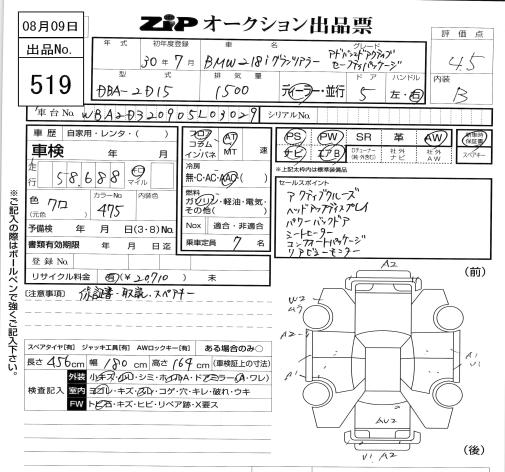 08月09日
ZiP オークション出品票
出品No.
519
年式
初年度登録
30年7月
車名
BMW218iグランツアラー
グレード
アドバンスドアクティブ
セーフティパッケージ
評価点
4.5
型式
DBA-2D15
排気量
1500
ディーラー・並行
ドア
5
ハンドル
左・右
内装
B
車台No.
WBA2D320905L03029
シリアルNo.
車歴
自家用・レンタ( )
車検
年 月
走行
58,688
km
マイル
色
クロ
(元色)
カラーNo
475
内装色
予備検 年 月 日(3・8)No.
書類有効期限 年 月 日迄
登録No.
リサイクル料金 有(¥20,710) 未
フロア
コラム
インパネ
AT
MT
速
冷房
無・C・AC・AAC
燃料
ガソリン・軽油・電気・
その他( )
Nox 適合・非適合
乗車定員 7 名
PS PW SR 革 AW
新車時保証書
ナビ エアB
社外ナビ
社外AW
スペアキー
※上記太枠内は標準装備品
セールスポイント
アクティブクルーズ
ヘッドアップディスプレイ
パワーバックドア
シートヒーター
コンフォートパッケージ
リアビューモニター
[注意事項]
保証書・取説・スペアキー
スペアタイヤ[有] ジャッキ工具[有] AWロックキー[有] ある場合のみ○
長さ 456cm 幅 180cm 高さ 164cm (車検証上の寸法)
検査記入
外装 小キズ・凹・シミ・ホイルA・ドアミラー(A・ワレ)
室内 ヨゴレ・キズ・スレ・コゲ・穴・キレ・破れ・ウキ
FW トビ石・キズ・ヒビ・リペア跡・X要ス
※ご記入の際はボールペンで強くご記入下さい。
(前)
A2
W2
A2
A1
V1
A1
AU2
V1 A2
(後)